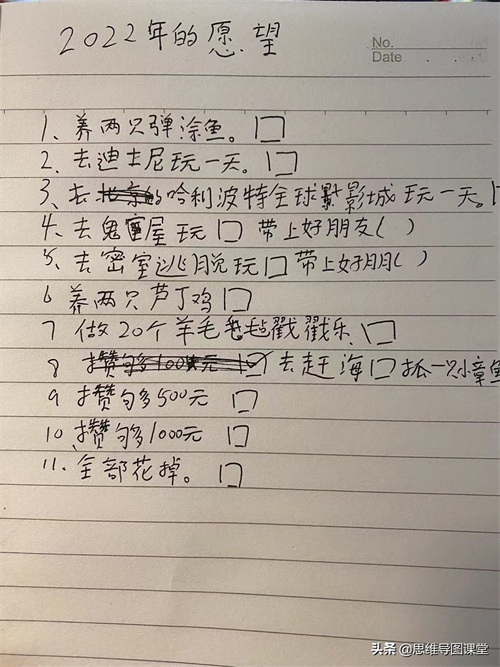 2022年的愿望
No.
Date
1、养两只弹涂鱼。口
2、去迪士尼玩一天。口
3、去北京的哈利波特全球影城玩一天。口
4、去鬼屋玩口 带上好朋友( )
5、去密室逃脱玩口带上好朋( )
6 养两只芦丁鸡口
7 做20个羊毛毡戳戳乐、口
8 攒够多100块元 去赶海口抓一只小章鱼
9 攒够多500元 口
10、攒够多1000元 口
11、全部花掉。口
头条 @思维导图课堂